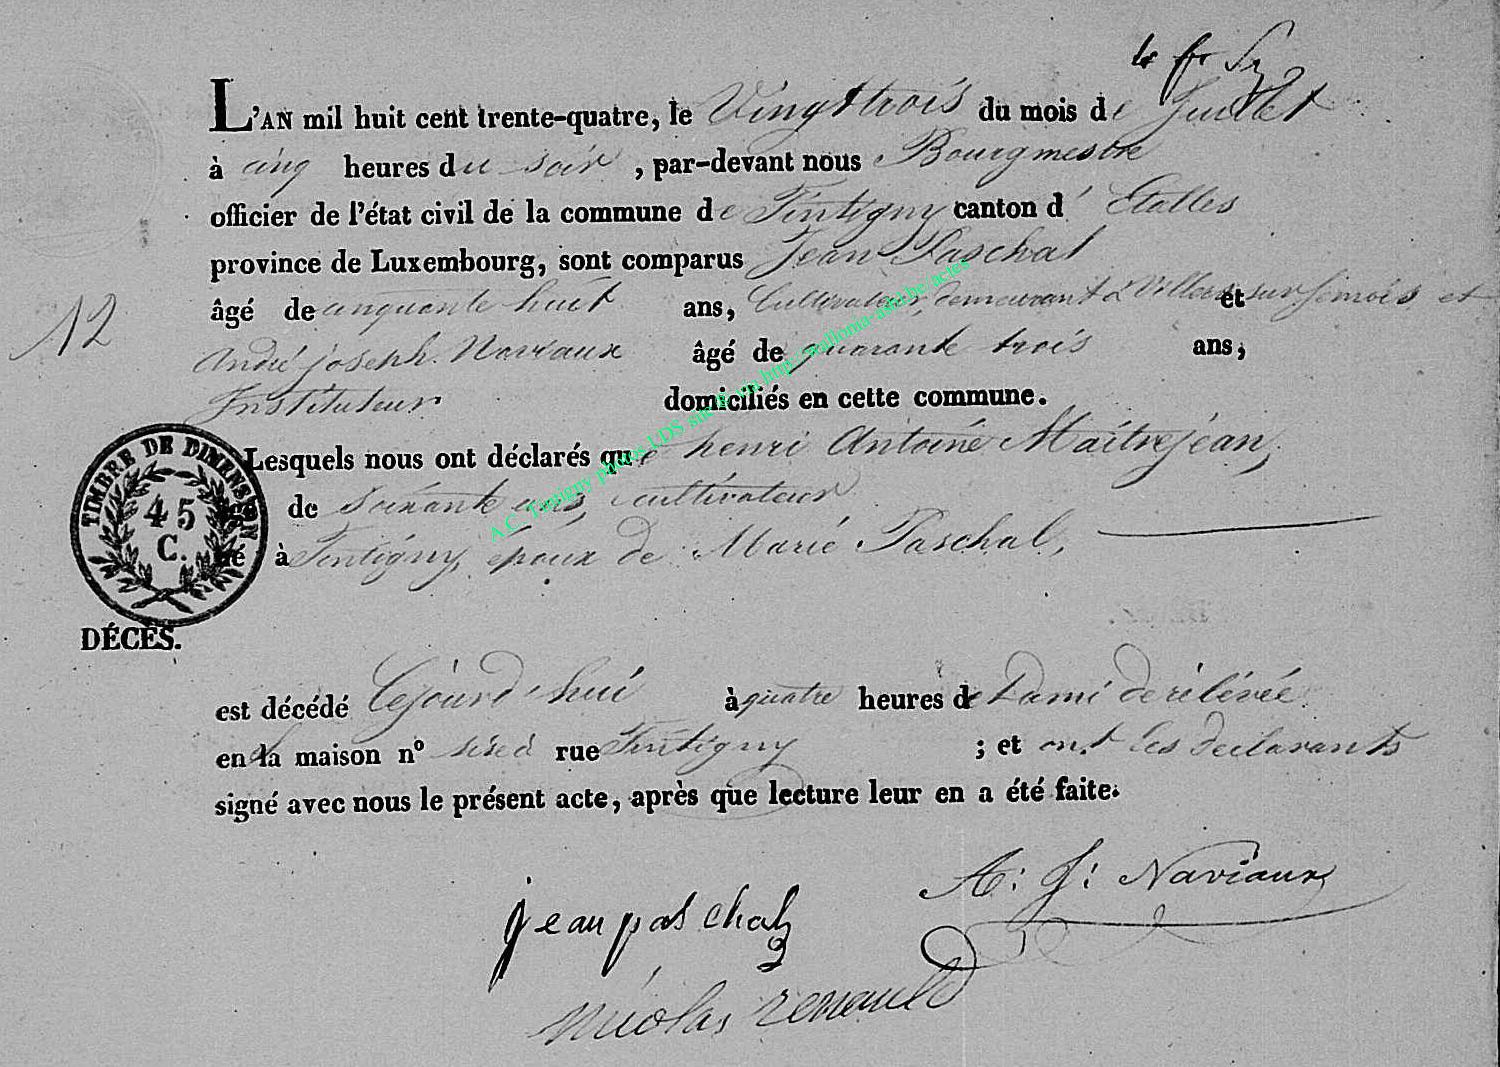 L'AN mil huit cent trente-quatre, le Vingt trois du mois de Juillet
à cinq heures du soir, par-devant nous Bourgmestre
officier de l'état civil de la commune de Tintigny canton d' Etalles
province de Luxembourg, sont comparus Jean Paschal
âgé de cinquante huit ans, Cultivateur, demeurant à Villers sur Semois et et
12
André joseph Naviaux âgé de quarante trois ans,
Instituteur domiciliés en cette commune.
Lesquels nous ont déclarés que henri Antoine Maîtrejean,
de soixante ans, cultivateur
né à Tintigny, époux de Marie Paschal,
TIMBRE DE DIMENSION
45
C.
DÉCÈS.
est décédé Cejourd'hui à quatre heures de
en la maison nº sise à rue Tintigny ; et ont les declarants
signé avec nous le présent acte, après que lecture leur en a été faite.
A: J: Naviaux
jean paschal
Nicolas renauld
A.C. Tintigny photos LDS site R. via http://wallonia-asbl.be/actes